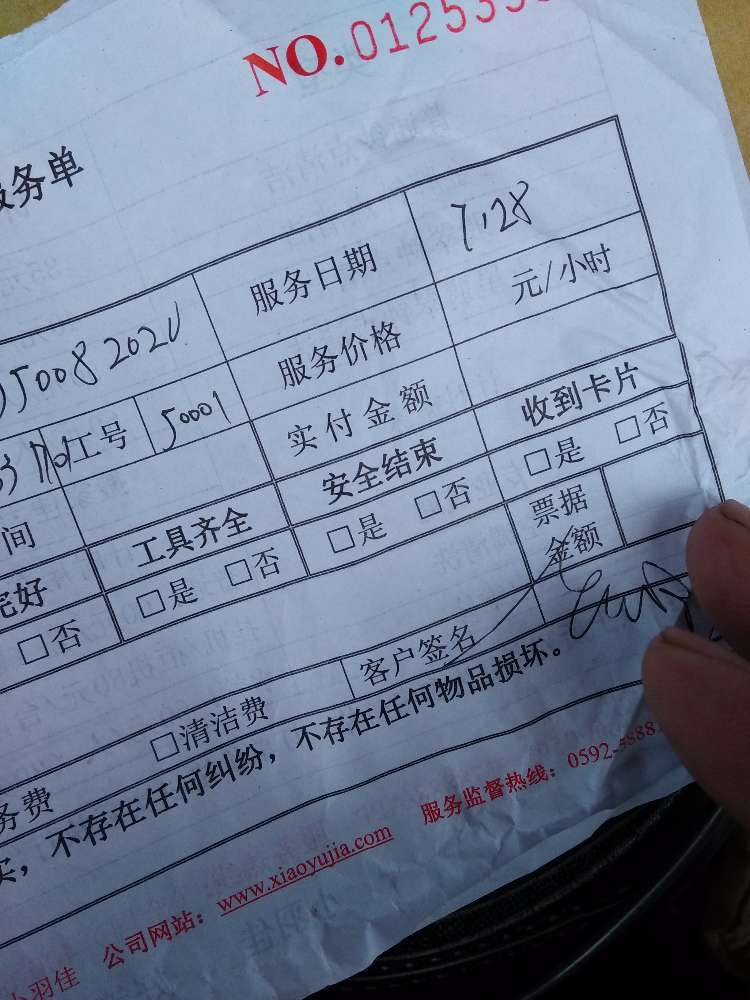 NO.012535
服务单
服务日期 7.28
5008202 服务价格 元/小时
工号 50001 实付金额 收到卡片
间 工具齐全 安全结束 □是 □否
完好 □是 □否 □是 □否 票据金额
□否
客户签名
务费 □清洁费
不存在任何纠纷，不存在任何物品损坏。
小羽佳 公司网站：www.xiaoyujia.com 服务监督热线：0592-5888